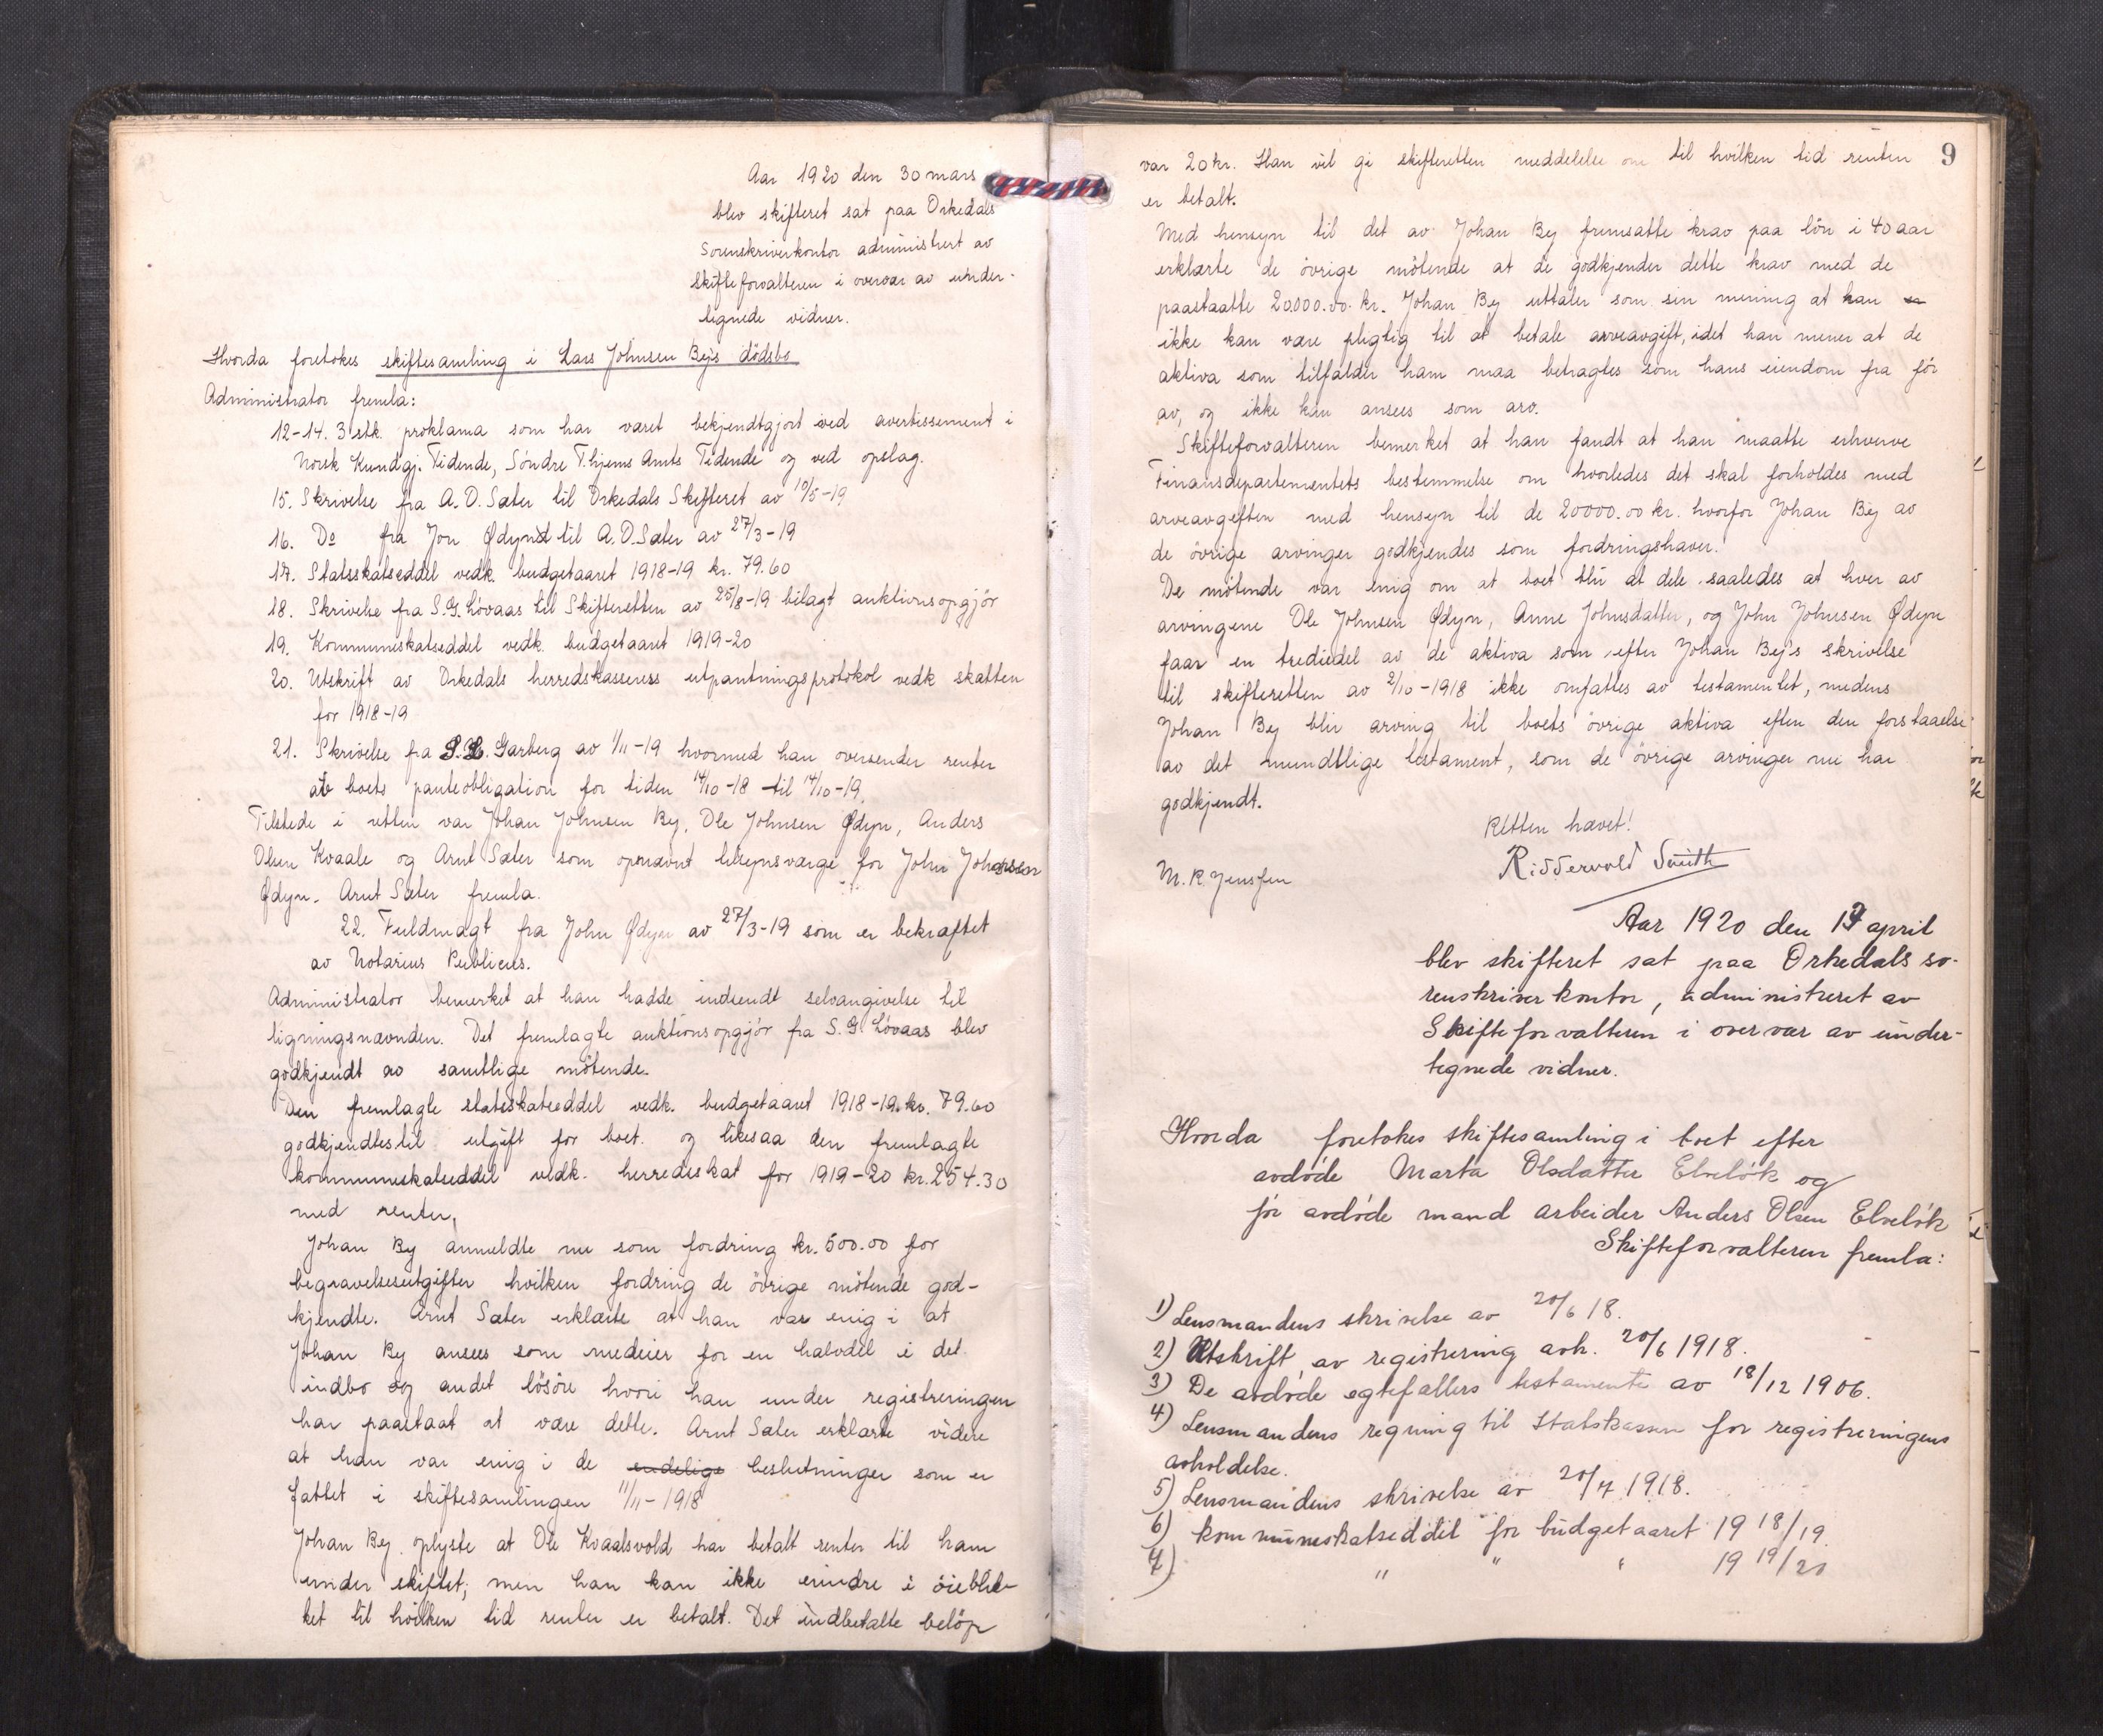 Aar 1920 den 30 mars
blev skifteret sat paa Orkedals
Sorenskriverkontor administrert av
Skifteforvalteren i overvær av under-
tegnede vidner.
Hvorda foretokes skiftesamling i Lars Johnsen By's dödsbo
Administrator fremla:
12-14. 3 stk. proklama som har været bekjendtgjort ved avertissement i
Norsk Kundgj. Tidende, Söndre T.hjems Amts Tidende og ved opslag.
15. Skrivelse fra A.O. Sæter til Orkedals Skifteret av 10/5-19
16. Do fra Jon Ødynd til A.O. Sæter av 27/3-19
17. Statsskatseddel vedk. budgetaaret 1918-19 kr. 79.60
18. Skrivelse fra S.G. Lövaas til Skifteretten av 25/8-19 bilagt auktionsopgjör
19. Kommuneskatseddel vedk. budgetaaret 1919-20
20. Utskrift av Orkedals herredskasserers utpantningsprotokol vedk skatten
for 1918-19
21. Skrivelse fra Garberg av 1/11-19 hvormed han oversender renter
av boets panteobligation for tiden 14/10-18 til 14/10-19.
Tilstede i retten var Johan Johnsen By, Ole Johnsen Ødyn, Anders
Olsen Kvaale og Arnt Sæter som opnævnt tilsynsværge for John Johnsen
Ødyn. Arnt Sæter fremla.
22. Fuldmagt fra John Ødyn av 27/3-19 som er bekræftet
av Notarius Publicus.
Administrator bemerket at han hadde indsendt selvangivelse til
ligningsnævnden. Det fremlagte auktionsopgjör fra S.G. Lövaas blev
godkjendt av samtlige mötende.
Den fremlagte statsskatseddel vedk. budgetaaret 1918-19. kr. 79.60
godkjendtes til utgift for boet. og likesaa den fremlagte
kommuneskatseddel vedk. herredsskat for 1919-20 kr. 254.30
med renter.
Johan By anmeldte nu som fordring kr. 500.00 for
begravelsesutgifter hvilken fordring de övrige mötende god-
kjendte. Arnt Sæter erklærte at han var enig i at
Johan By ansees som medeier for en halvdel i det
indbo og andet lösöre hvori han under registreringen
har paastaat at være dette. Arnt Sæter erklærte videre
at han var enig i de endelige beslutninger som er
fattet i skiftesamlingen 11/11-1918
Johan By oplyste at Ole Kvaalsvold har betalt renter til ham
under skiftet; men han kan ikke erindre i öieblik-
ket til hvilken tid renter er betalt. Det indbetalte belöp
9
var 20 kr. Han vil gi skifteretten meddelelse om til hvilken tid renten
er betalt.
Med hensyn til det av Johan By fremsatte krav paa lön i 40 aar
erklærte de övrige mötende at de godkjender dette krav med de
paastaatte 20000.00 kr. Johan By uttaler som sin mening at han er
ikke kan være pligtig til at betale arveavgift, idet han mener at de
aktiva som tilfalder ham maa betragtes som hans eiendom fra för
av, og ikke kan ansees som arv.
Skifteforvalteren bemerket at han fandt at han maatte erhverve
Finansdepartementets bestemmelse om hvorledes det skal forholdes med
arveavgiften med hensyn til de 20000.00 kr. hvorfor Johan By av
de övrige arvinger godkjendes som fordringshaver.
De mötende var enig om at boet blir at dele saaledes at hver av
arvingene Ole Johnsen Ødyn, Anne Johnsdatter, og John Johnsen Ødyn
faar en trediedel av de aktiva som efter Johan By's skrivelse
til skifteretten av 2/10-1918 ikke omfattes av testamentet, medens
Johan By blir arving til boets övrige aktiva efter den forstaaelse
av det mundtlige testament, som de övrige arvinger nu har
godkjendt.
Retten hævet!
Riddervold Smith
M. R. Jenssen
Aar 1920 den 17 april
blev skifteret sat paa Orkedals so-
renskriverkontor, administreret av
Skifteforvalteren i overvær av under-
tegnede vidner.
Hvorda foretokes skiftesamling i boet efter
avdøde Marta Olsdatter Elveløk og
før avdøde mand arbeider Anders Olsen Elveløk
Skifteforvalteren fremla:
1) Lensmandens skrivelse av 20/6 18.
2) Utskrift av registrering avh. 20/6 1918.
3) De avdøde egtefællers testamente av 18/12 1906.
4) Lensmandens regning til Statskassen for registreringens
avholdelse.
5) Lensmandens skrivelse av 20/7 1918.
6) kommuneskatseddel for budgetaaret 19 18/19.
7) " " " 19 19/20